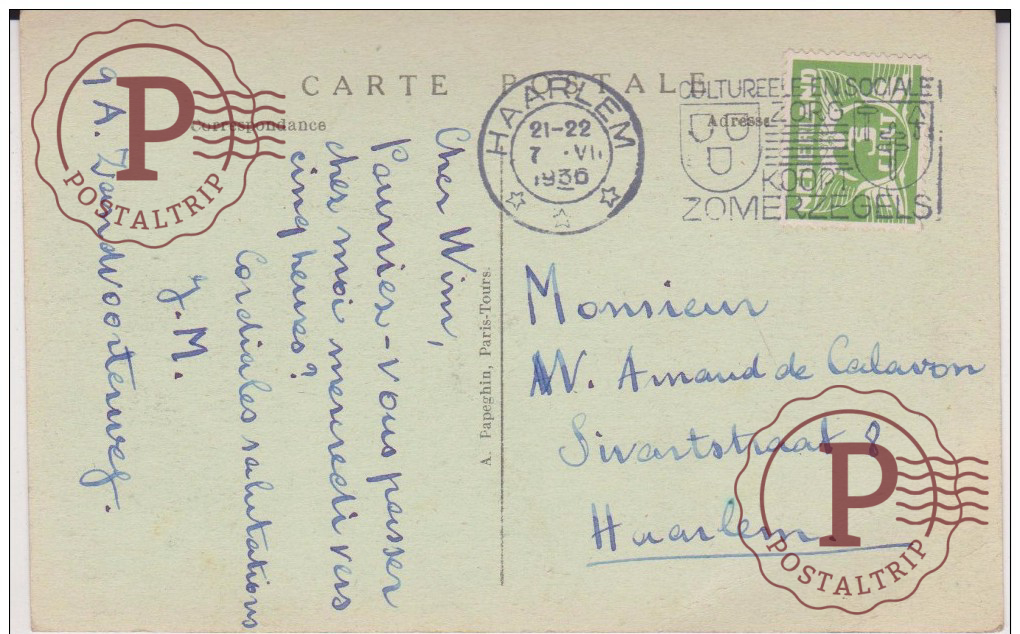 CARTE POSTALE
Correspondance
Adresse
HAARLEM
21-22
7 .VI.
1936
CULTUREELE EN SOCIALE
ZORG
KOOPT
ZOMERZEGELS
Cher Wim,
Pourriez-vous passer
chez moi mercredi vers
cinq heures?
Cordiales salutations
J.M.
9 A. Zandvoorterweg.
A. Papeghin, Paris-Tours.
Monsieur
W. Arnaud de Calavon
Sivartstraat 8
Haarlem
P
POSTALTRIP
P
POSTALTRIP